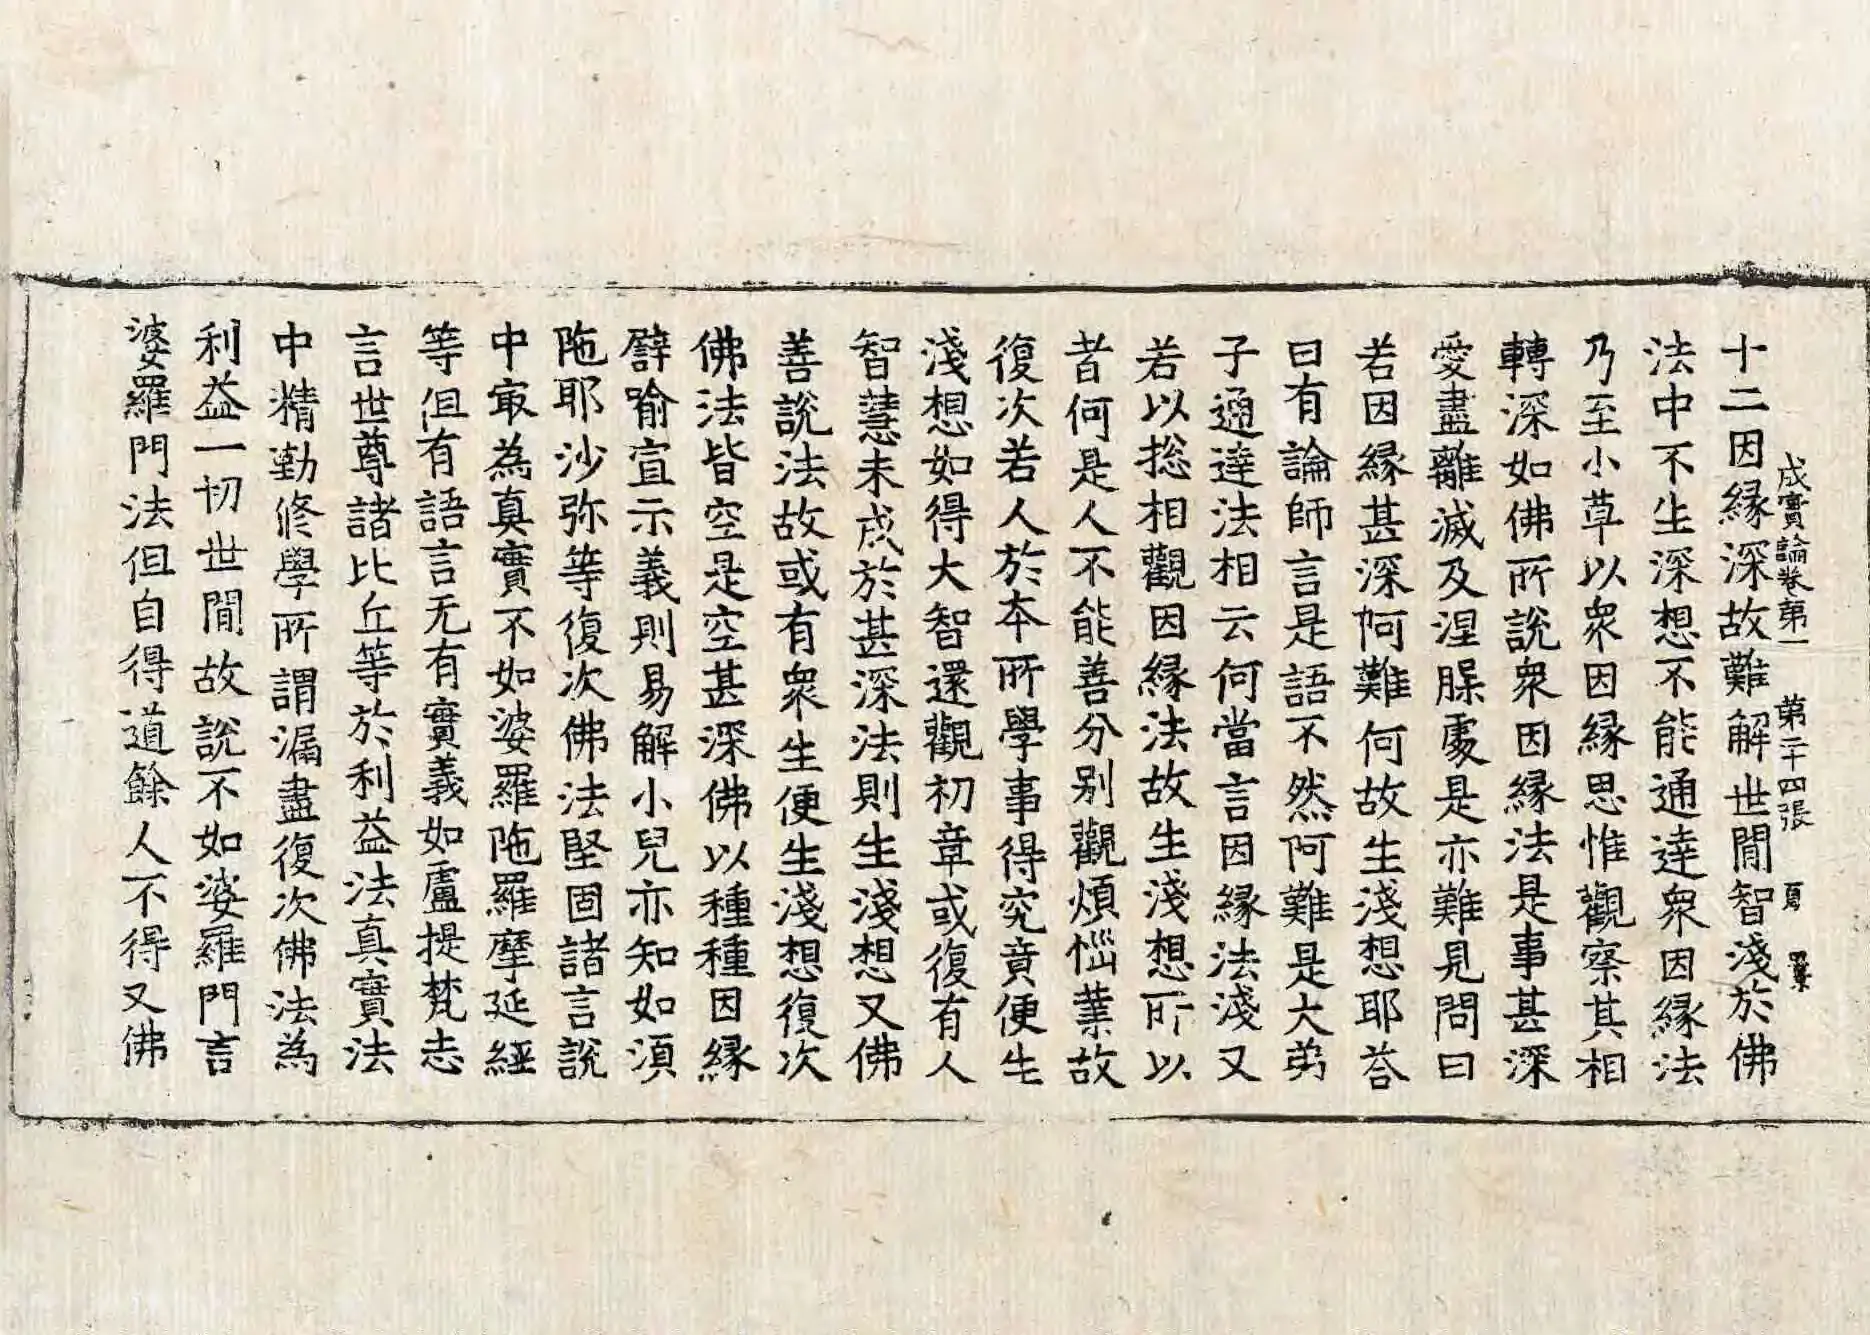 成實論卷第一 第二十四張
十二因緣深故難解世閒智淺於佛
法中不生深想不能通達衆因緣法
乃至小草以衆因緣思惟觀察其相
轉深如佛所說衆因緣法是事甚深
愛盡離滅及涅槃處是亦難見問曰
若因緣甚深阿難何故生淺想耶荅
曰有論師言是語不然阿難是大弟
子通達法相云何當言因緣法淺又
若以捴相觀因緣法故生淺想所以
者何是人不能善分别觀煩惱業故
復次若人於本所學事得究竟便生
淺想如得大智還觀初章或復有人
智慧未成於甚深法則生淺想又佛
善說法故或有衆生便生淺想復次
佛法皆空是空甚深佛以種種因緣
譬喻宣示義則易解小兒亦知如須
陁耶沙弥等復次佛法堅固諸言說
中㝡為真實不如婆羅陁羅摩延經
等但有語言无有實義如盧提梵志
言世尊諸比丘等於利益法真實法
中精勤修學所謂漏盡復次佛法為
利益一切世閒故說不如婆羅門言
婆羅門法但自得道餘人不得又佛